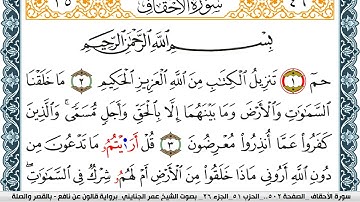 ٢٥ سورة الأحقاف ٤٦
بِسْمِ اللَّهِ الرَّحْمَٰنِ الرَّحِيمِ
حمٓ ١ تَنزِيلُ الْكِتَٰبِ مِنَ اللَّهِ الْعَزِيزِ الْحَكِيمِ ٢ مَا خَلَقْنَا
السَّمَٰوَٰتِ وَالْأَرْضَ وَمَا بَيْنَهُمَا إِلَّا بِالْحَقِّ وَأَجَلٍ مُّسَمًّى وَالَّذِينَ
كَفَرُوا عَمَّا أُنذِرُوا مُعْرِضُونَ ٣ قُلْ أَرَٰيْتُمُ مَا تَدْعُونَ مِن
دُونِ اللَّهِ أَرُونِي مَاذَا خَلَقُوا مِنَ الْأَرْضِ أَمْ لَهُمُ شِرْكٌ فِي السَّمَٰوَٰتِ
سورة الأحقاف . الصفحة ٥٠٢ . الحزب ٥١ . الجزء ٢٦ . بصوت الشيخ عمر الجنايني . برواية قالون عن نافع - بالقصر والصلة